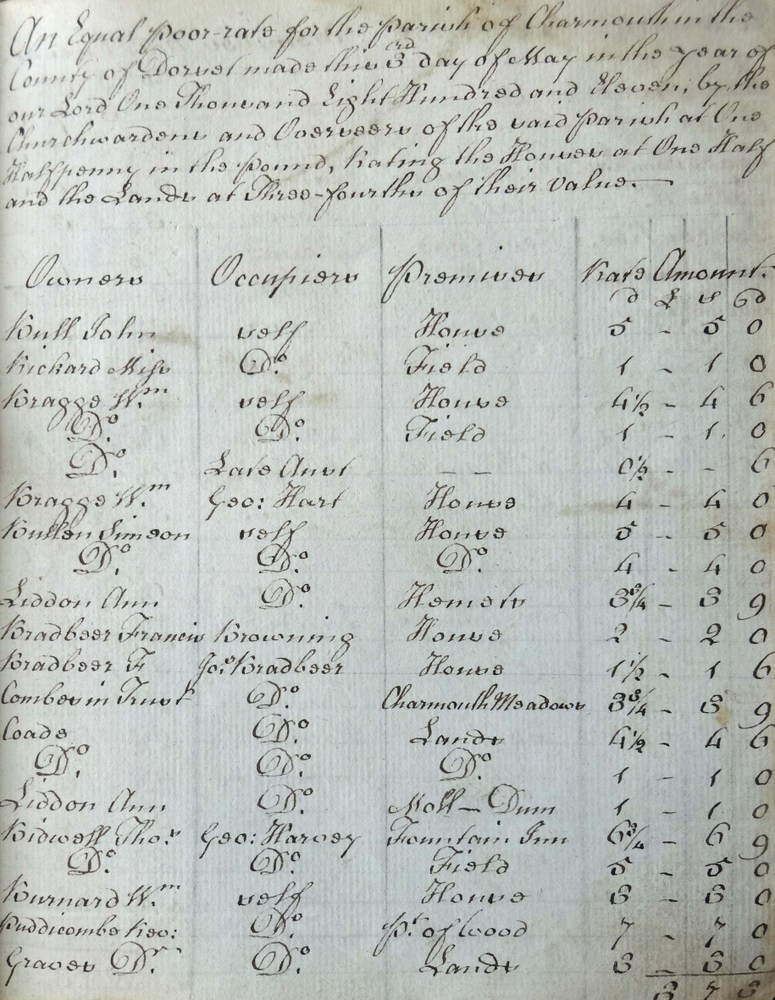 An Equal Poor-rate for the Parish of Charmouth in the
County of Dorset made this 3rd day of May in the year of
our Lord One Thousand Eight Hundred and Eleven, by the
Churchwardens and Overseers of the said Parish at One
Halfpenny in the Pound, Rating the Houses at One Half
and the Lands at Three-fourths of their Value.
Owners Occupiers Premises Rate Amount.
d £ s d
Bull John self House 5 - 5 0
Rickard Miss Do. Field 1 - 1 0
Bragge Wm. self House 4½ - 4 6
Do. Do. Field 1 - 1 0
Do. Late Aust — — 0½ - - 6
Bragge Wm. Geo: Hart House 4 - 4 0
Bullen Simeon self House 5 - 5 0
Do. Do. Do. 4 - 4 0
Liddon Ann Do. 3¾ - 3 9
Bradbeer Francis Browning House 2 - 2 0
Bradbeer F Jos. Bradbeer House 1½ - 1 6
Combes in Trust Do. Charmouth Meadows 3¾ - 3 9
Coade Do. Lands 4½ - 4 6
Do. Do. Do. 1 - 1 0
Liddon Ann Do. 1 - 1 0
Bidwell Thos. Geo: Harvey Fountain Inn 6¾ - 6 9
Do. Do. Field 5 - 5 0
Burnard Wm. self House 3 - 3 0
Puddicombe Do. Pt. of wood 7 - 7 0
Graves Do. Do. Lands 3 - 3 0
3 7 3